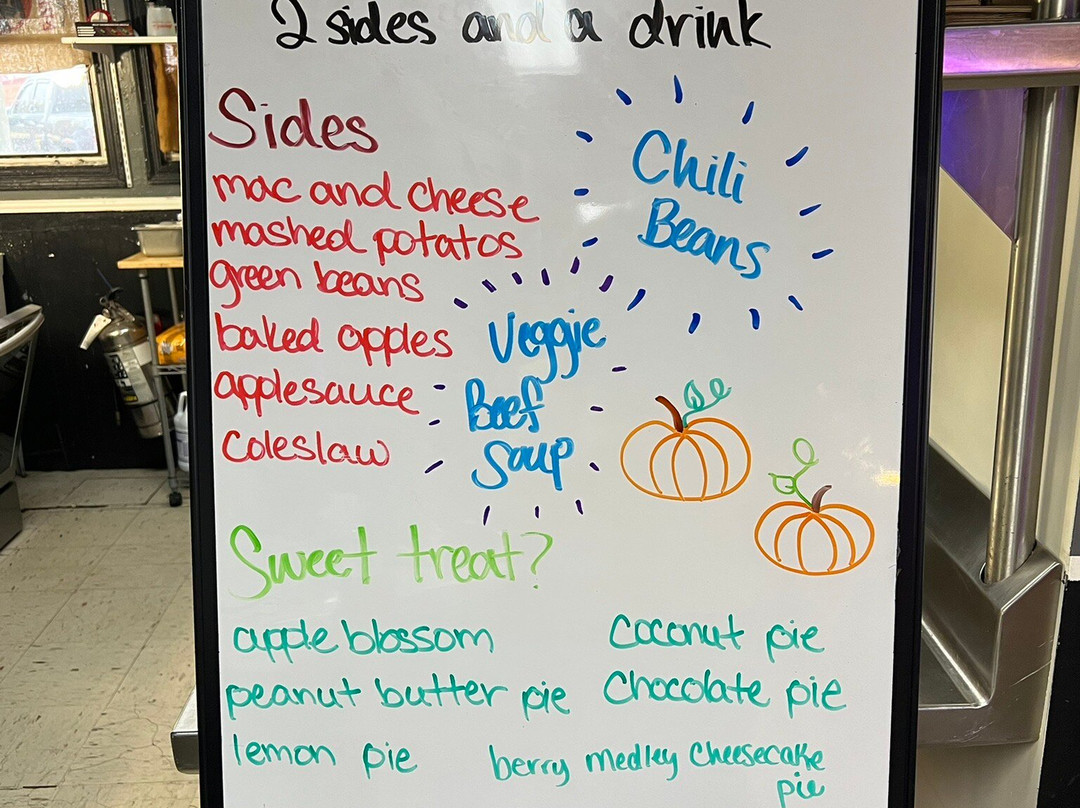 2 sides and a drink
Sides
mac and cheese
mashed potatos
green beans
baked apples
applesauce
coleslaw
Chili
Beans
Veggie
Beef
Soup
Sweet treat?
apple blossom
coconut pie
peanut butter pie
Chocolate pie
lemon pie
berry medley Cheesecake
pie